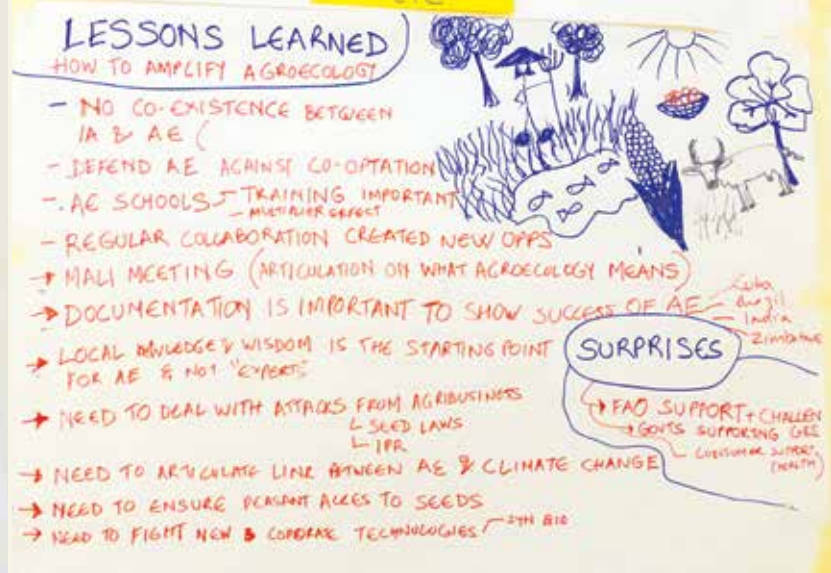 LESSONS LEARNED
HOW TO AMPLIFY AGROECOLOGY
- NO CO-EXISTENCE BETWEEN
IA & AE
- DEFEND AE AGAINST CO-OPTATION
- AE SCHOOLS - TRAINING IMPORTANT
- MULTIPLIER EFFECT
- REGULAR COLLABORATION CREATED NEW OPPS
→ MALI MEETING (ARTICULATION ON WHAT AGROECOLOGY MEANS)
→ DOCUMENTATION IS IMPORTANT TO SHOW SUCCESS OF AE
Cuba
Brazil
India
Zimbabwe
→ LOCAL & WISDOM IS THE STARTING POINT
FOR AE & NOT "EXPERTS"
→ NEED TO DEAL WITH ATTACKS FROM AGRIBUSINESS
SEED LAWS
IPR
→ NEED TO ARTICULATE LINK BTWEEN AE & CLIMATE CHANGE
→ NEED TO ENSURE PEASANT ACCES TO SEEDS
→ NEED TO FIGHT NEW & CORPORATE TECHNOLOGIES - SYN BIO
SURPRISES
→ FAO SUPPORT + CHALLEN
→ GOVTS SUPPORTING
CONSUMER SUPPORT
(HEALTH)